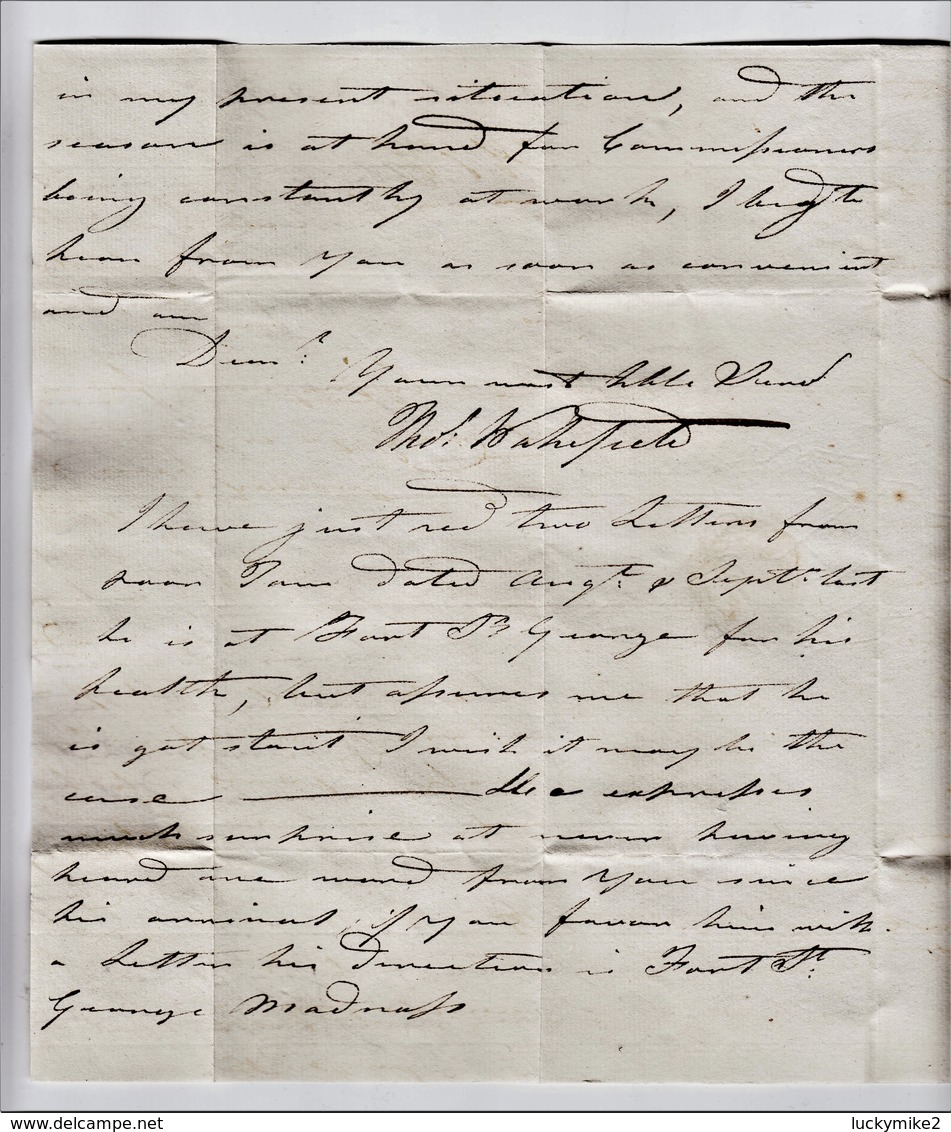 in my present situation, and the
season is at hand for Commissioners
being constantly at work, I beg to
hear from you as soon as convenient
and am
Dear Sr.
Your most Hble Servt
Thos: Wakefield
I have just recd two Letters from
poor Tom dated Augt. & Septr. last
he is at Fort St George for his
health, but assures me that he
is got stout I wish it may be the
case ——— He expresses
much surprise at never having
heard one word from you since
his arrival, if you favor him with
a Letter his direction is Fort St.
George Madrass
www.delcampe.net
luckymike2